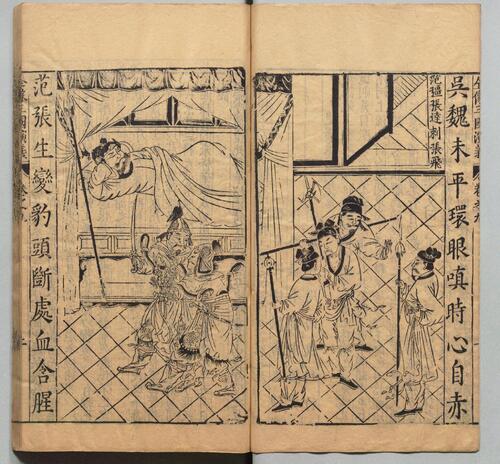 吳魏未平環眼嗔時心自赤
范彊張達刺張飛
范張生變豹頭斷處血含腥